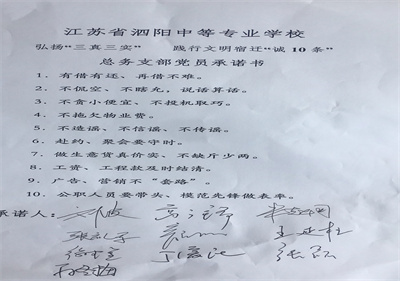 江苏省泗阳中等专业学校
弘扬“三真三实” 践行文明宿迁“诚10条”
总务支部党员承诺书
1．有借有还、再借不难。
2．不侃空、不瞎允，说话算话。
3．不贪小便宜、不投机取巧。
4．不拖欠物业费。
5．不造谣、不信谣、不传谣。
6．赴约、聚会要守时。
7．做生意货真价实、不缺斤少两。
8．工资、工程款及时结清。
9．广告、营销不“套路”。
10．公职人员要带头、模范先锋做表率。
承诺人：